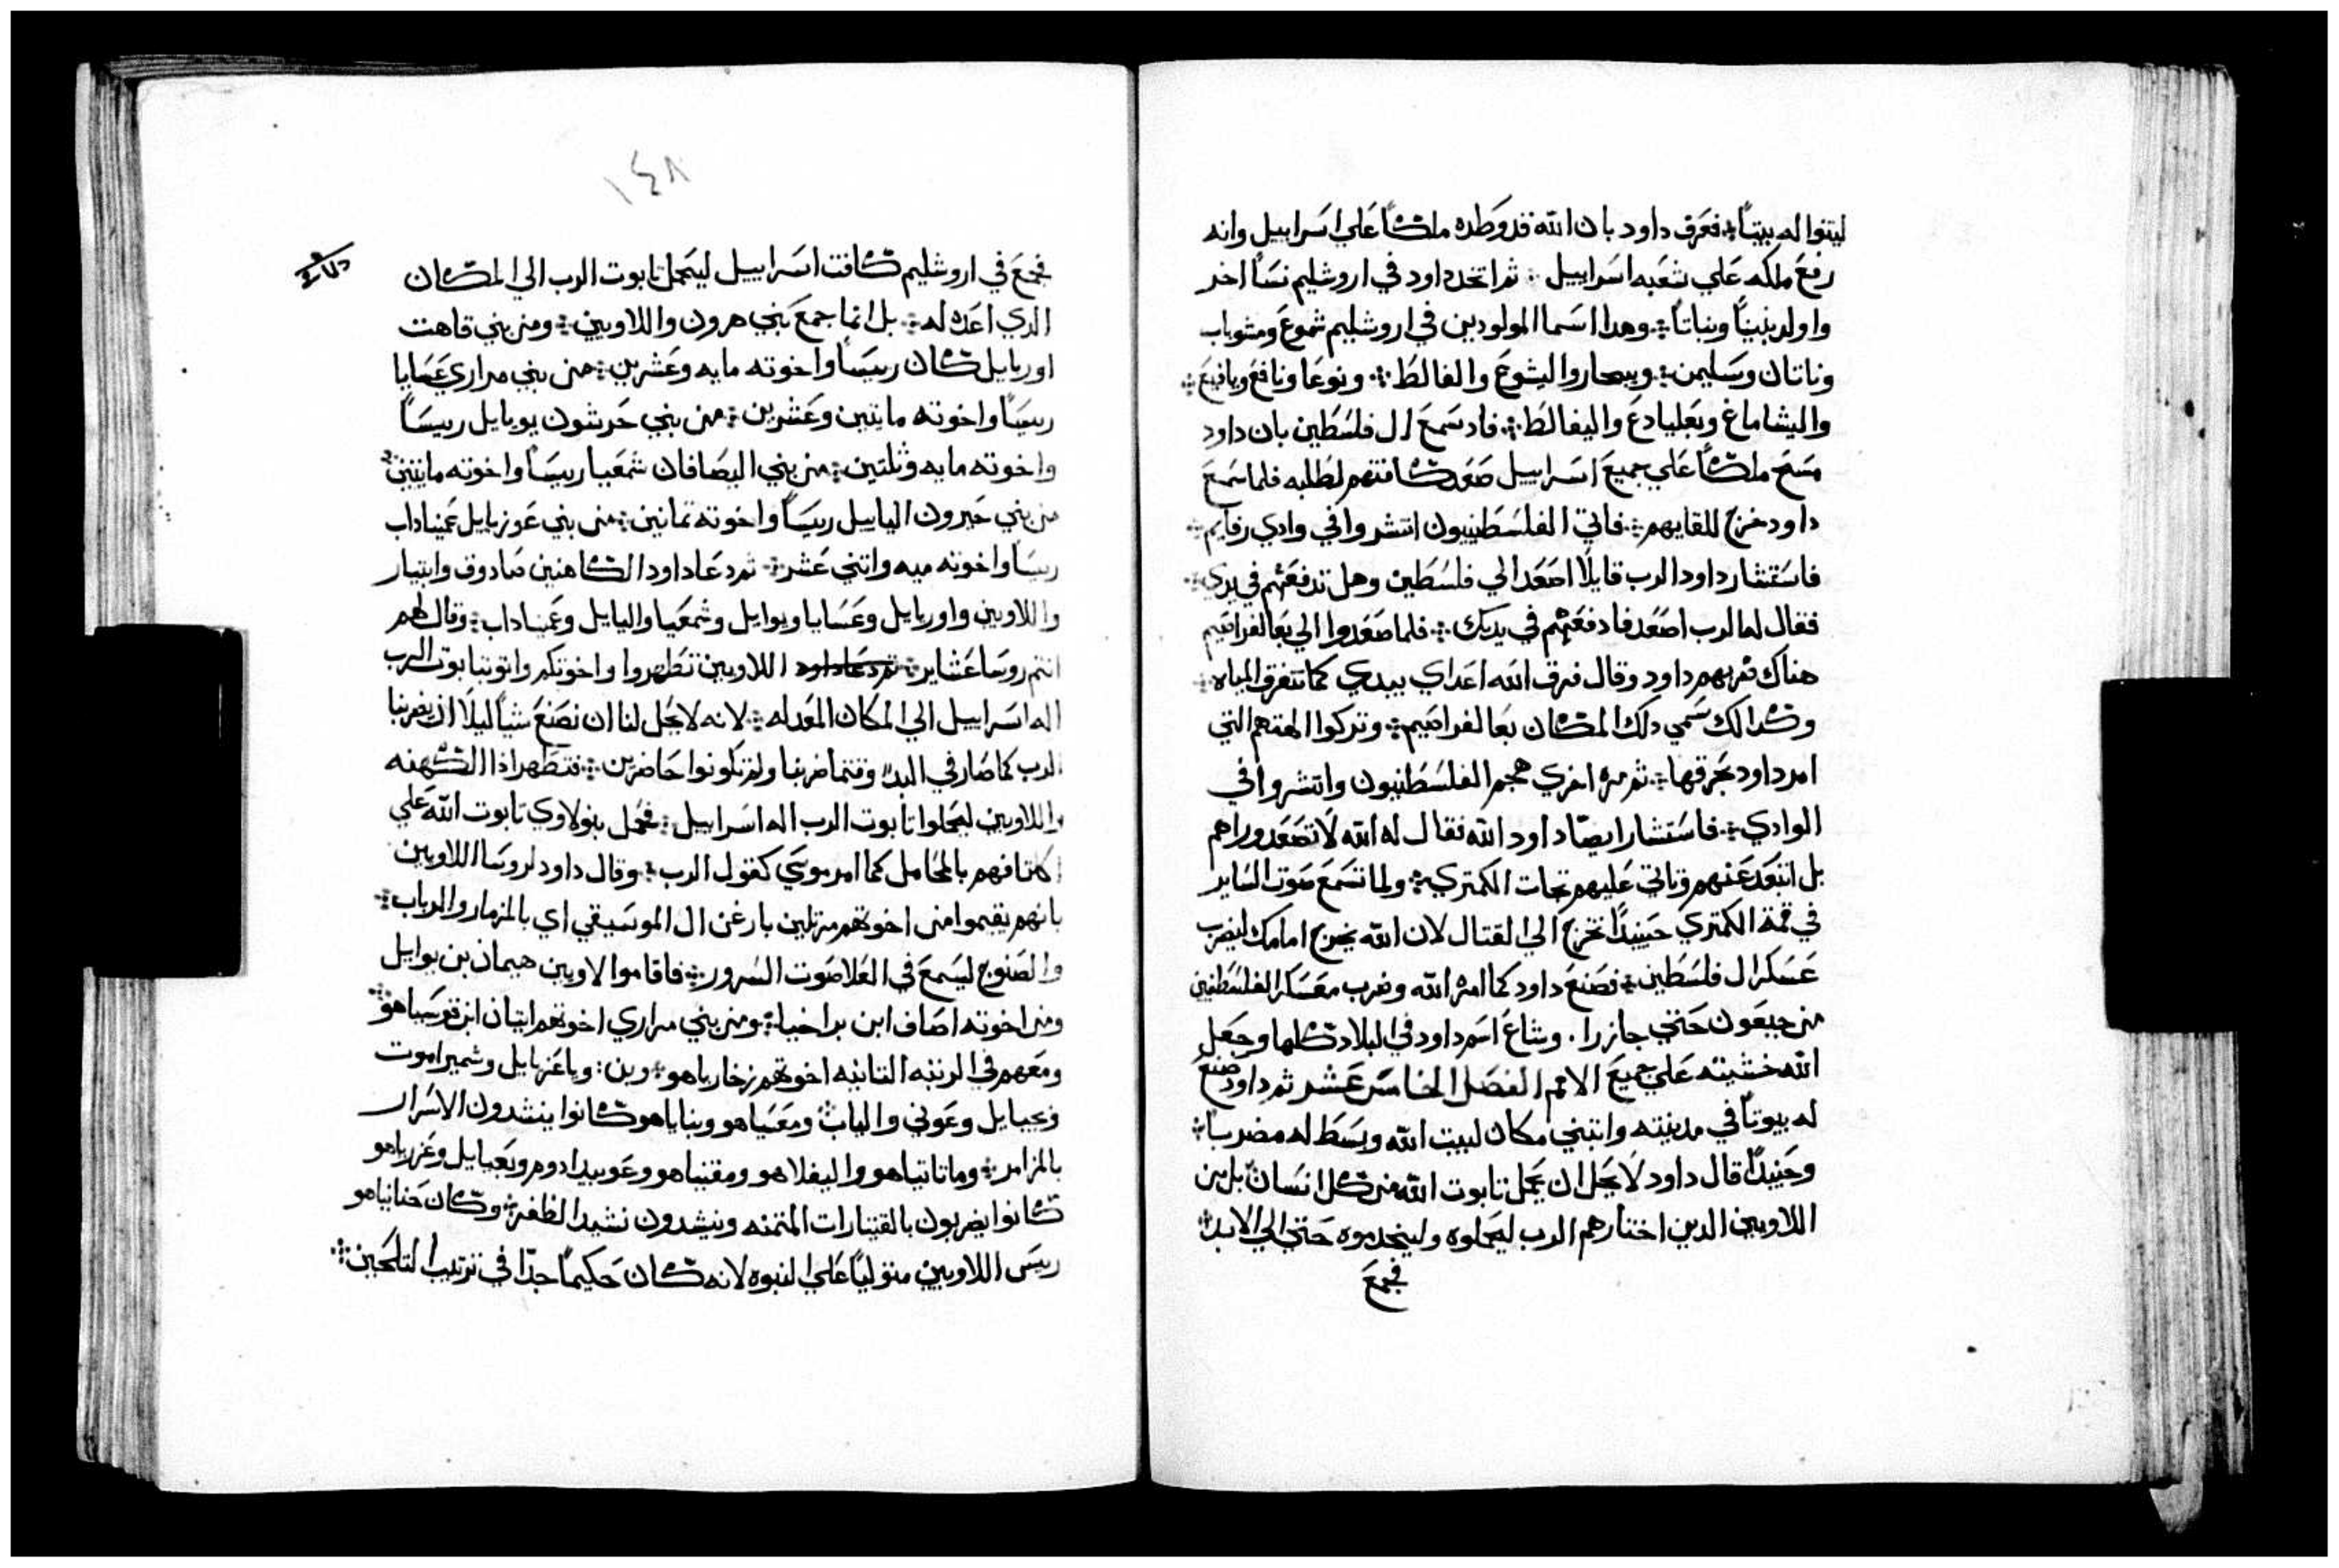 ليتنوا له بيتاً فعرف داود بان الله قد وطده ملكاً علي اسراييل وانه
رفع ملكه علي شعبه اسراييل ثم اتخد داود في اروشليم نسآ اخر
واولد بنيناً وبناتاً وهدا اسما المولودين في اروشليم شموع وشوباب
وناتان وسليمن ويبحار واليشوع والفالط ونوغا ونافغ ويافيع
واليشاماع وبعليادع واليفالط فاد سمع ال فلسطين بان داود
مسح ملكاً علي جميع اسراييل صعد كافتهم لطلبه فلما سمع
داود خرج للقايهم فاتي الفلسطنييون انتشروا في وادي رفايم
فاستشار داود الرب قايلاً اصعد الي فلسطين وهل تدفعهم في يدي
فقال له الرب اصعد فادفعهم في يديك فلما صعدوا الي بعالفراصيم
هناك ضربهم داود وقال فرق الله اعداي بيدي كما تتفرق المياه
وكدالك سمي دلك المكان بعالفراصيم وتركوا الهتهم التي
امر داود بحرقها ثم مره اخري هجم الفلسطنيون وانتشروا في
الوادي فاستشار ايضاً داود الله فقال له الله لا تصعد وراهم
بل ابتعد عنهم وتاتي عليهم تجات الكمتري ولما تسمع صوت الساير
في قمة الكمتري حينيداً تخرج الي القتال لان الله يخرج امامك ليضرب
عسكر ال فلسطين فصنع داود كما امره الله وضرب معسكر الفلسطنيين
من جبعون حتي جازرا. وشاع اسم داود في البلاد كلها وجعل
الله خشيته علي جميع الامم الفصل الخامس عشر ثم داود صنع
له بيوتاً في مدينته وابتني مكان لبيت الله وبسط له مضرباً
وحينيداً قال داود لا يحل ان يحمل تابوت الله من كل انسان بل من
اللاويين الدين اختارهم الرب ليحملوه وليخدموه حتي الي الابد
فجمع
١٤٨
فجمع في اروشليم كافت اسراييل ليحمل تابوت الرب الي المكان
الدي اعده له بل انما جمع بني هرون واللاويين ومن بني قاهت
اوريايل كان رييساً واخوته مايه وعشرين من بني مراري عسايا
رييساً واخوته مايتين وعشرين من بني جرشون يويايل رييساً
واخوته مايه وتلتين من بني اليصافان شمعيا رييساً واخوته مايتين
من بني حبرون الياييل رييساً واخوته تمانين من بني عوزيايل عميناداب
رييساً واخوته ميه واتني عشر ثم دعا داود الكاهنين صادوق وابتيار
واللاويين واوريايل وعسايا ويوايل وشمعيا واليايل وعميناداب وقال لهم
انتم روسا عشاير ثم دعا داود اللاويين تطهروا واخوتكم واتوا بتابوت الرب
اله اسراييل الي المكان المعد له لانه لا يحل لنا ان نصنع شياً ليلا ان يضربنا
الرب كما صار في البدء وقتما ضربنا ولم تكونوا حاضرين فتطهر اذا الكهنه
واللاويين ليحملوا تابوت الرب اله اسراييل فحمل بنو لاوي تابوت الله علي
اكتافهم بالمحامل كما امر موسي كقول الرب وقال داود لروسا اللاويين
بانهم يقيموا من اخوتهم مرتلين بارغن ال الموسيقي اي بالمزمار والرباب
والصنوج ليسمع في العلا صوت السرور فاقاموا لاويين هيمان بن يوايل
ومن اخوته اصاف ابن براخيا ومن بني مراري اخوتهم ايتان ابن قوسياهو
ومعهم في الرتبه التانيه اخوتهم زخارياهو وبن: وياعزيايل وشميراموت
ويحيايل وعوني والياب ومعسياهو وبناياهو كانوا ينشدون الاسرار
بالمزامر وماتاتياهو واليفلاهو ومقنياهو وعوبيدادوم ويعيايل وعزرياهو
كانوا يضربون بالقيتارات المتمنه وينشدون نشيد الظفر وكان حنانياهو
رييس اللاويين متولياً علي النبوه لانه كان حكيماً جداً في ترتيب التلحين